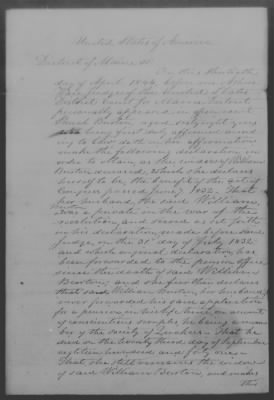 United States of America
District of Maine ss.
On this thirtieth
day of April 1844, before me Ashur
Ware Judge of the United States
District Court for Maine District
personally appeared
Sarah Buxton aged eighty
who being first duly affirmed
ing to law, doth on her affirmation
make the following declaration in
order to obtain, as the widow of William
Buxton deceased, which she declares
herself to be, the benefit of the act of
Congress passed June 7 1832. That
her husband, the said William,
was a private in the war of the
revolution, and served as set forth
in his declaration, made before said
Judge, on the 31st day of July 1832
and which original declaration has
been forwarded to the pension office
since the death of said William
Buxton; and she further declares
that said William Buxton, her husband,
never forwarded his said application
for a pension, in his life time, on account
of conscientious scruples, he being a mem-
ber of the society of Quakers. That he
died on the twenty third day of September
eighteen hundred and forty one.
That she still remains the widow
of said William Buxton, and makes
this